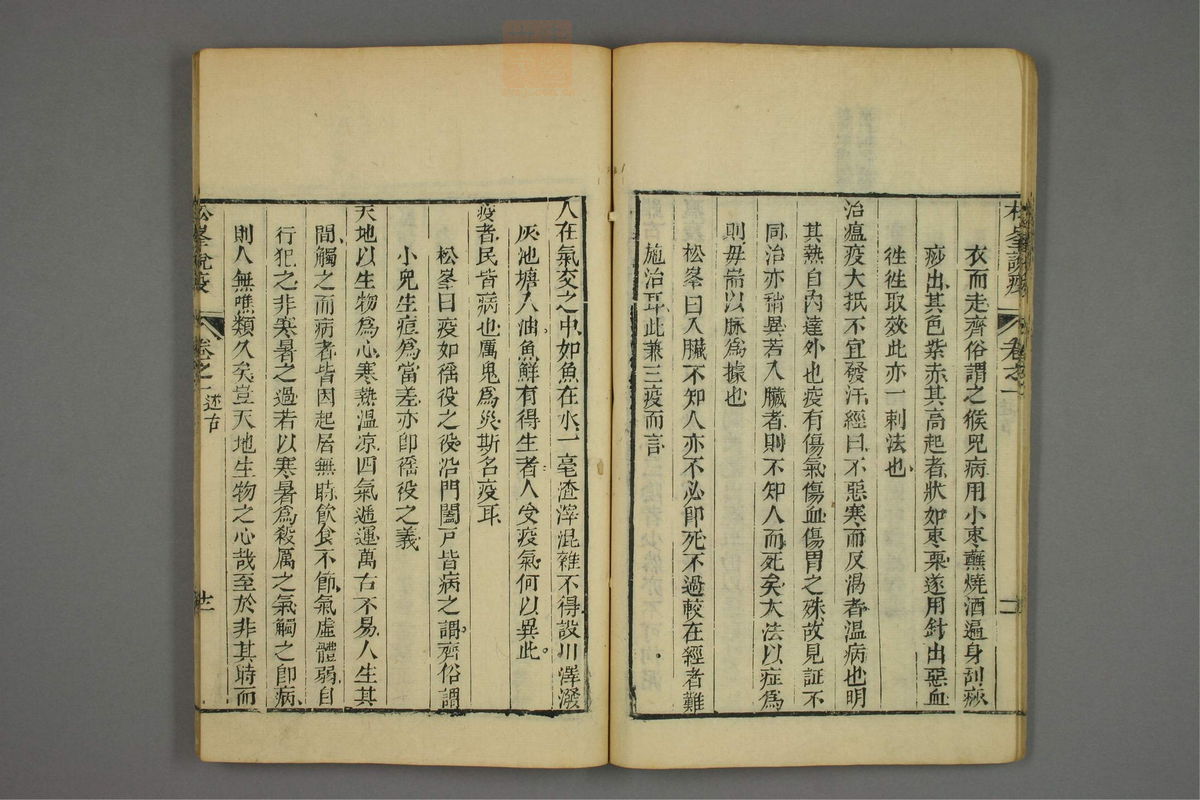 衣而走齊俗謂之猴兒病用小棗蘸燒酒遍身刮痧
痧出其色紫赤其高起者狀如棗栗遂用針出惡血
徃徃取效此亦一剌法也
治瘟疫大抵不宜發汗經曰不惡寒而反渴者溫病也明
其熱自內達外也疫有傷氣傷血傷胃之殊故見証不
同治亦稍異若入臟者則不知人而死矣大法以症為
則毋耑以脉為據也
松峯曰入臟不知人亦不必即死不過較在經者難
施治耳此兼三疫而言
人在氣交之中如魚在水一毫渣滓混雜不得設川澤潑
灰池塘入油魚鮮有得生者人受疫氣何以異此
疫者民皆病也厲鬼為災斯名疫耳
松峯曰疫如徭役之役沿門闔戶皆病之謂齊俗謂
小兒生痘為當差亦即徭役之義
天地以生物為心寒熱溫凉四氣遞運萬古不易人生其
間觸之而病者皆因起居無時飲食不節氣虛體弱自
行犯之非寒暑之過若以寒暑為殺厲之氣觸之即病
則人無噍類久矣豈天地生物之心哉至於非其時而
松峯說疫
卷之一
述古